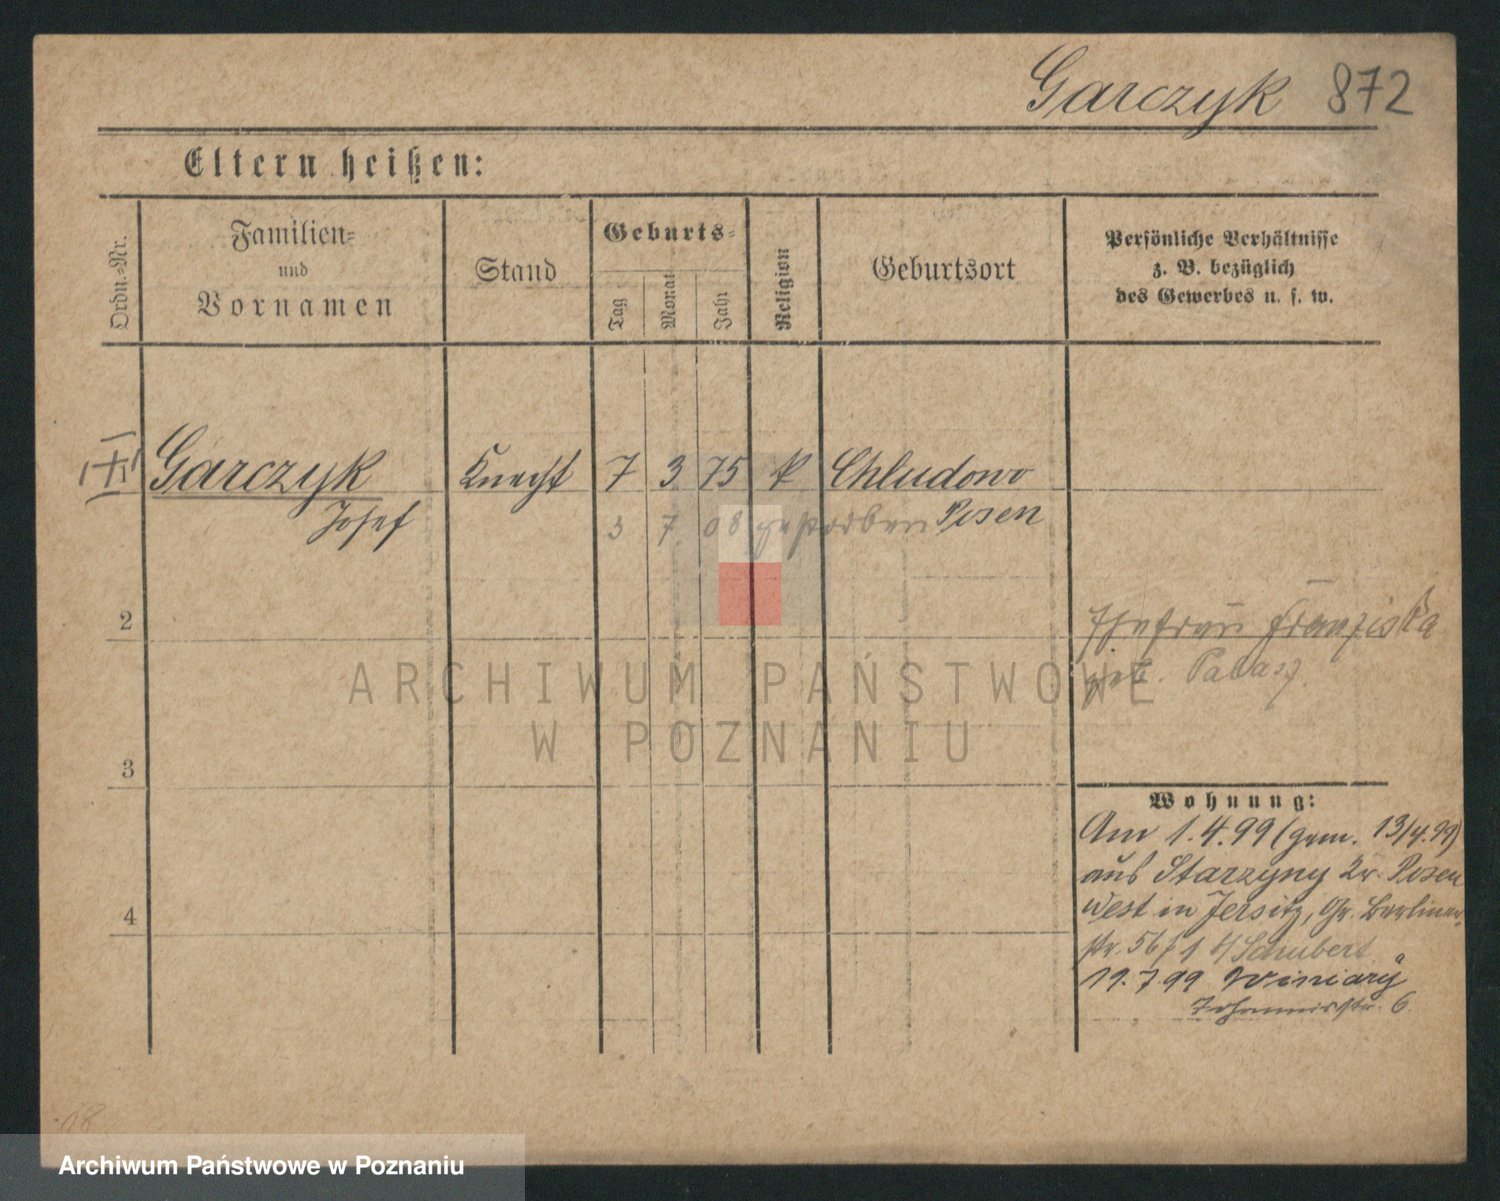 Garczyk 872
Eltern heißen:
Ordn.-Nr.
Familien-
und
Vornamen
Stand
Geburts-
Tag
Monat
Jahr
Religion
Geburtsort
Persönliche Verhältnisse
z. B. bezüglich
des Gewerbes u. s. w.
Garczyk Knecht 7 3 75 k Chludowo
Josef 3 7 08 gestorben Posen
2
Ehefrau Franziska
geb.
3
4
Wohnung:
Am 1.4.99 (gem. 13/4.99)
aus Starzyny Kr. Posen
West in Jersitz, Gr. Berliner-
str. 56 b/ Schubert
19.7 99 Winiary
Johannisstr. 6
ARCHIWUM PAŃSTWOWE
W POZNANIU
Archiwum Państwowe w Poznaniu